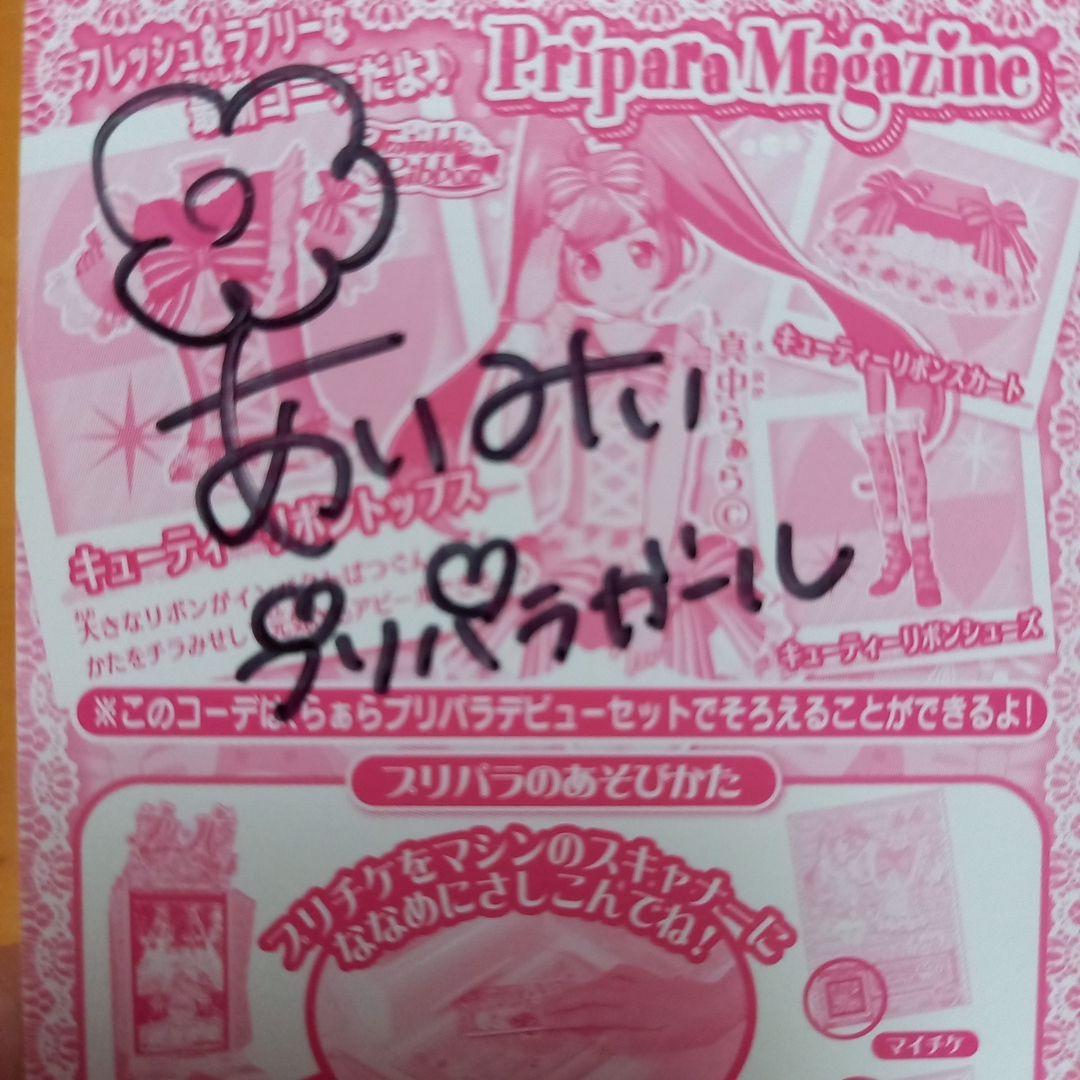 フレッシュ&ラブリーな
最新コーデだよ♪
Pripara Magazine
Ribbon
キューティーリボンスカート
真中らぁら©
あいみい
キューティーリボントップス
プリパラガール
大きなリボンが
かたをチラみせし
キューティーリボンシューズ
※このコーデは、らぁらプリパラデビューセットでそろえることができるよ!
プリパラのあそびかた
プリチケをマシンのスキャナーに
ななめにさしこんでね!
マイチケ